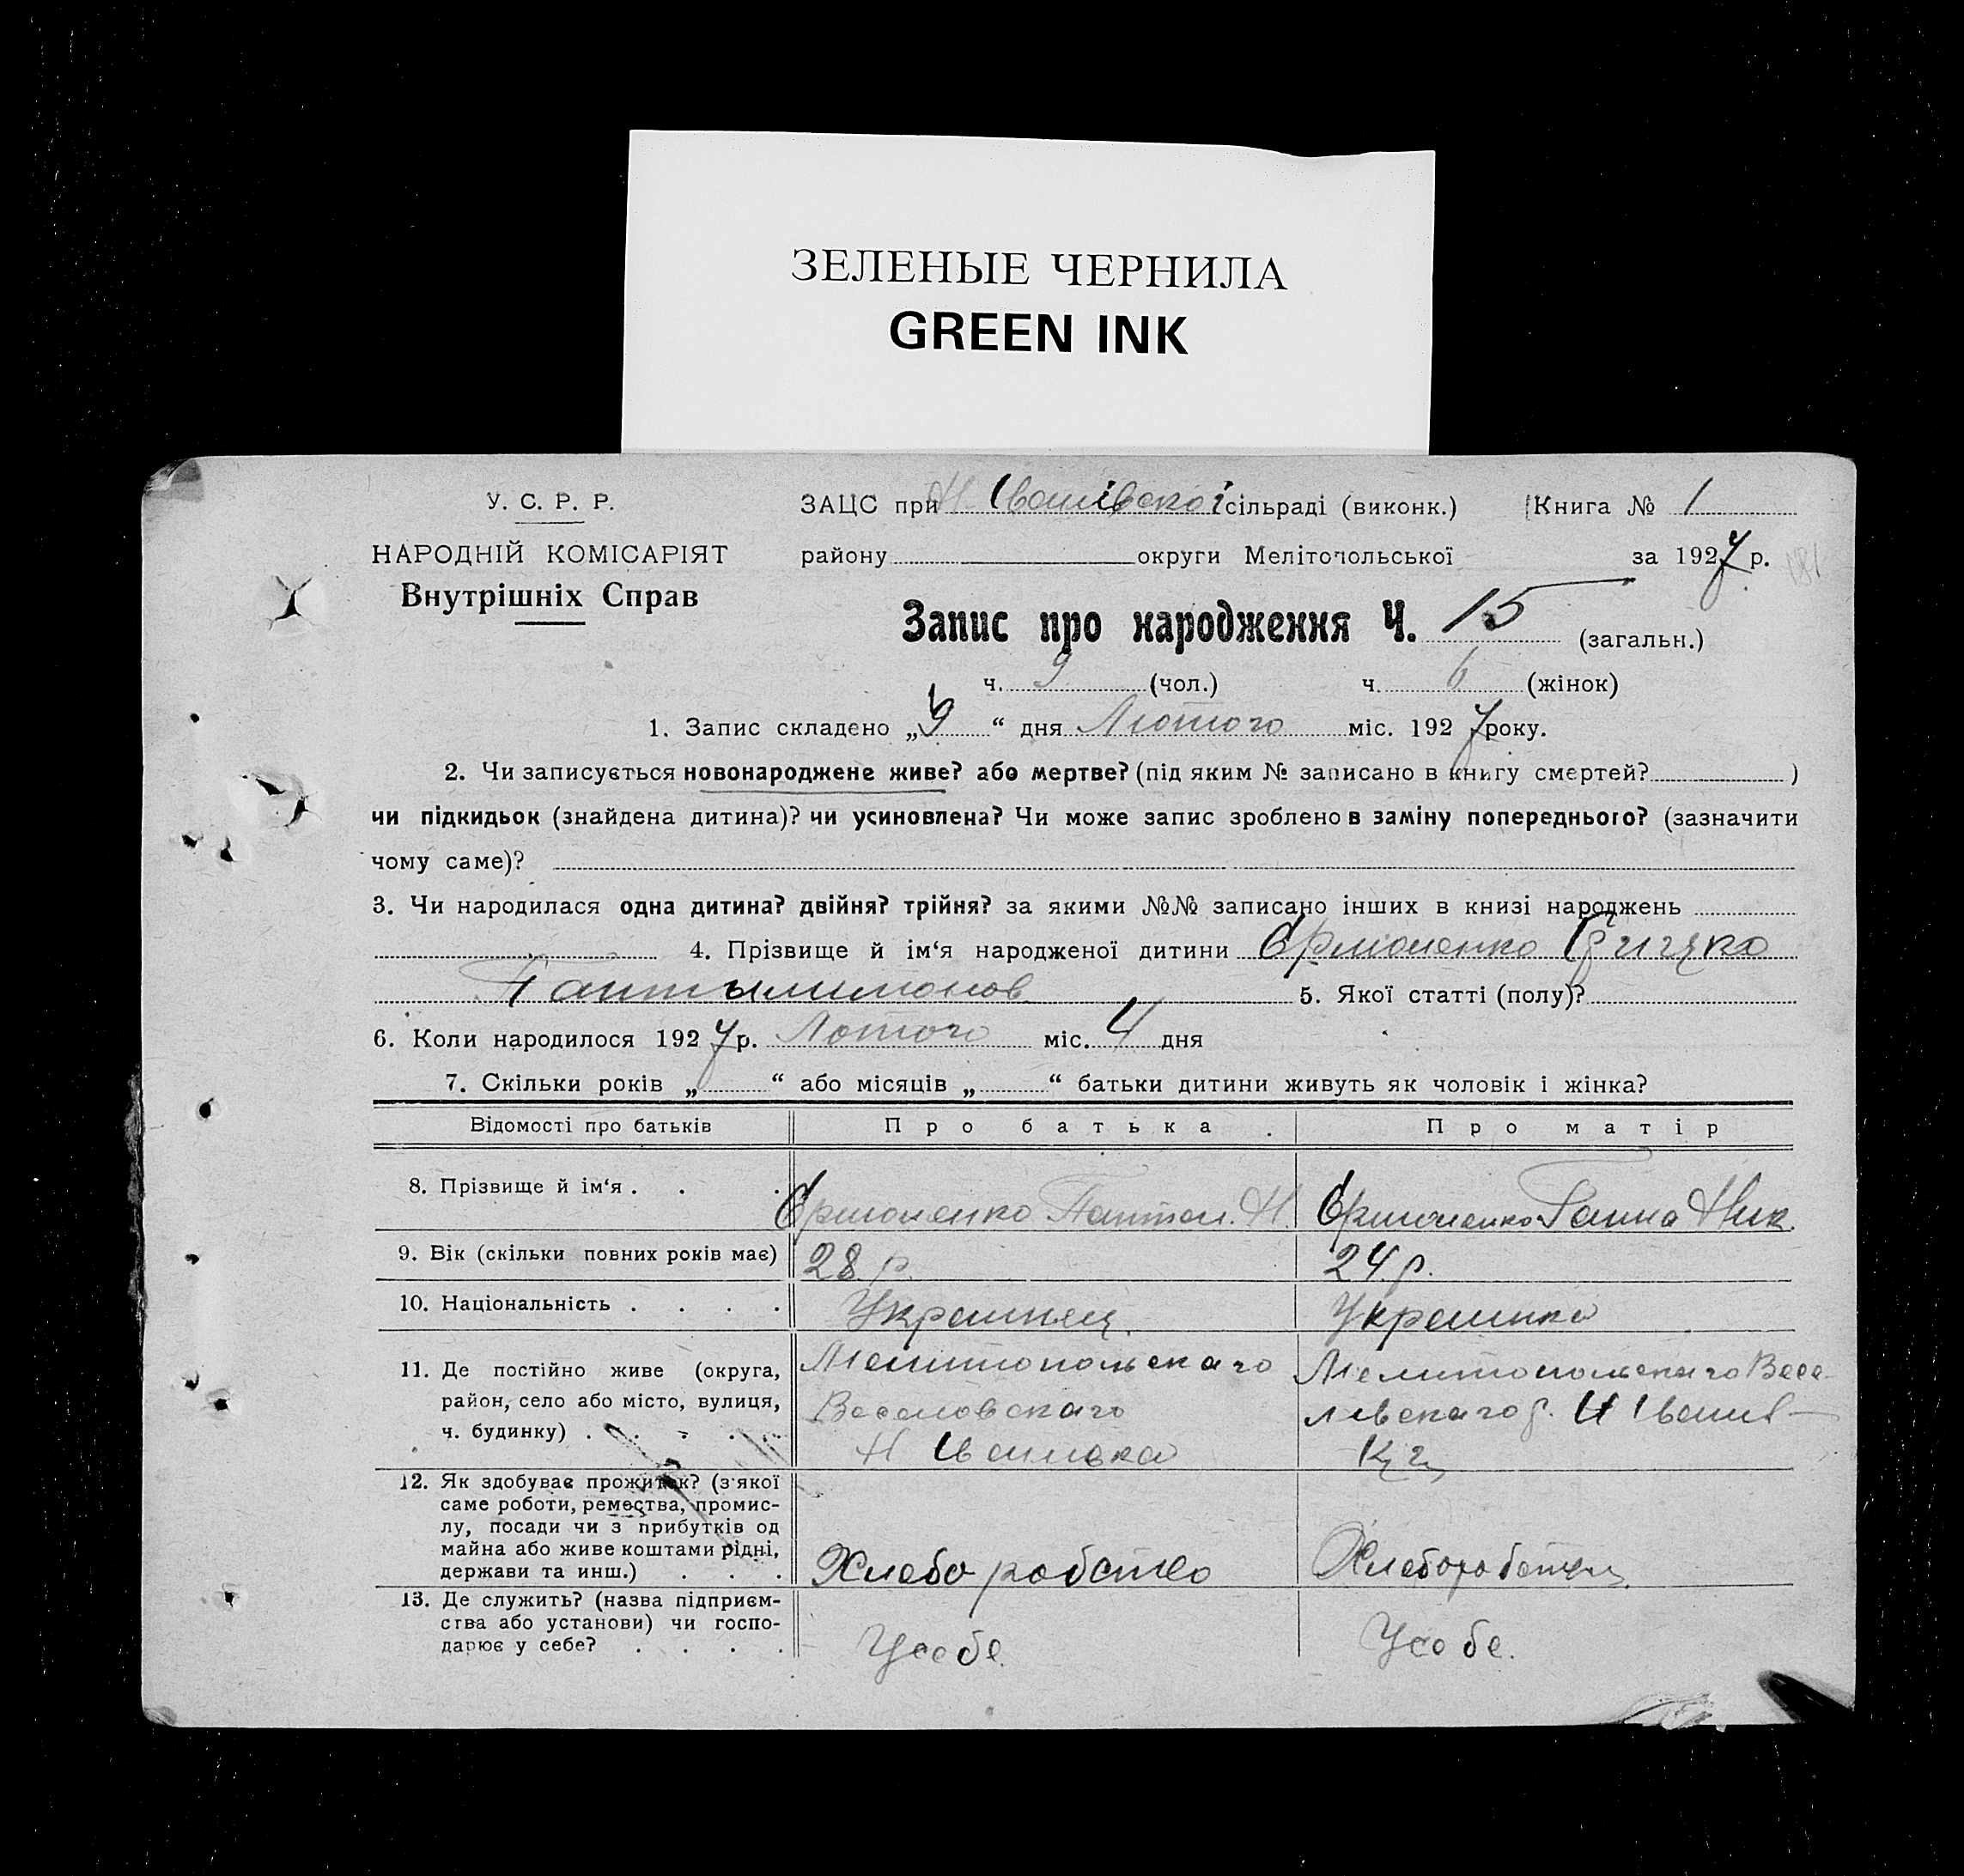 ЗЕЛЕНЫЕ ЧЕРНИЛА
GREEN INK
У. С. Р. Р.
НАРОДНІЙ КОМІСАРІЯТ
Внутрішніх Справ
ЗАЦС при Н Іванівскої сільраді (виконк.) Книга № 1
району округи Мелітопольської за 1927 р.
Запис про народження Ч. 15 (загальн.)
ч. 9 (чол.) ч. 6 (жінок)
1. Запис складено „ “ дня Лютого міс. 1927 року.
2. Чи записується новонароджене живе? або мертве? (під яким № записано в книгу смертей? )
чи підкидьок (знайдена дитина)? чи усиновлена? Чи може запис зроблено в заміну попереднього? (зазначити
чому саме)?
3. Чи народилася одна дитина? двійня? трійня? за якими №№ записано інших в книзі народжень
4. Прізвище й ім‘я народженої дитини Єрмоленко
5. Якої статті (полу)?
6. Коли народилося 1927 р. Лютого міс. 4 дня
7. Скільки років „ “ або місяців „ “ батьки дитини живуть як чоловік і жінка?
Відомості про батьків Про батька. Про матір
8. Прізвище й ім‘я . . . Єрмоленко Пантел. Н. Єрмоленко Ганна Ник.
9. Вік (скільки повних років має) 28 р. 24 р.
10. Національність . . . . Украинец. Украинка
11. Де постійно живе (округа,
район, село або місто, вулиця,
ч. будинку) . . . . .
Мелитопольскаго
Веселовскаго
Н Ивановка
Мелитопольскаго Весе-
ловскаго р. Н Іванів-
12. Як здобуває прожиток? (з якої
саме роботи, ремества, промис-
лу, посади чи з прибутків од
майна або живе коштами рідні,
держави та инш.) . . .
Хлебо робство
13. Де служить? (назва підприєм-
ства або установи) чи госпо-
дарює у себе? . . . .
Усебе.
Усобе.